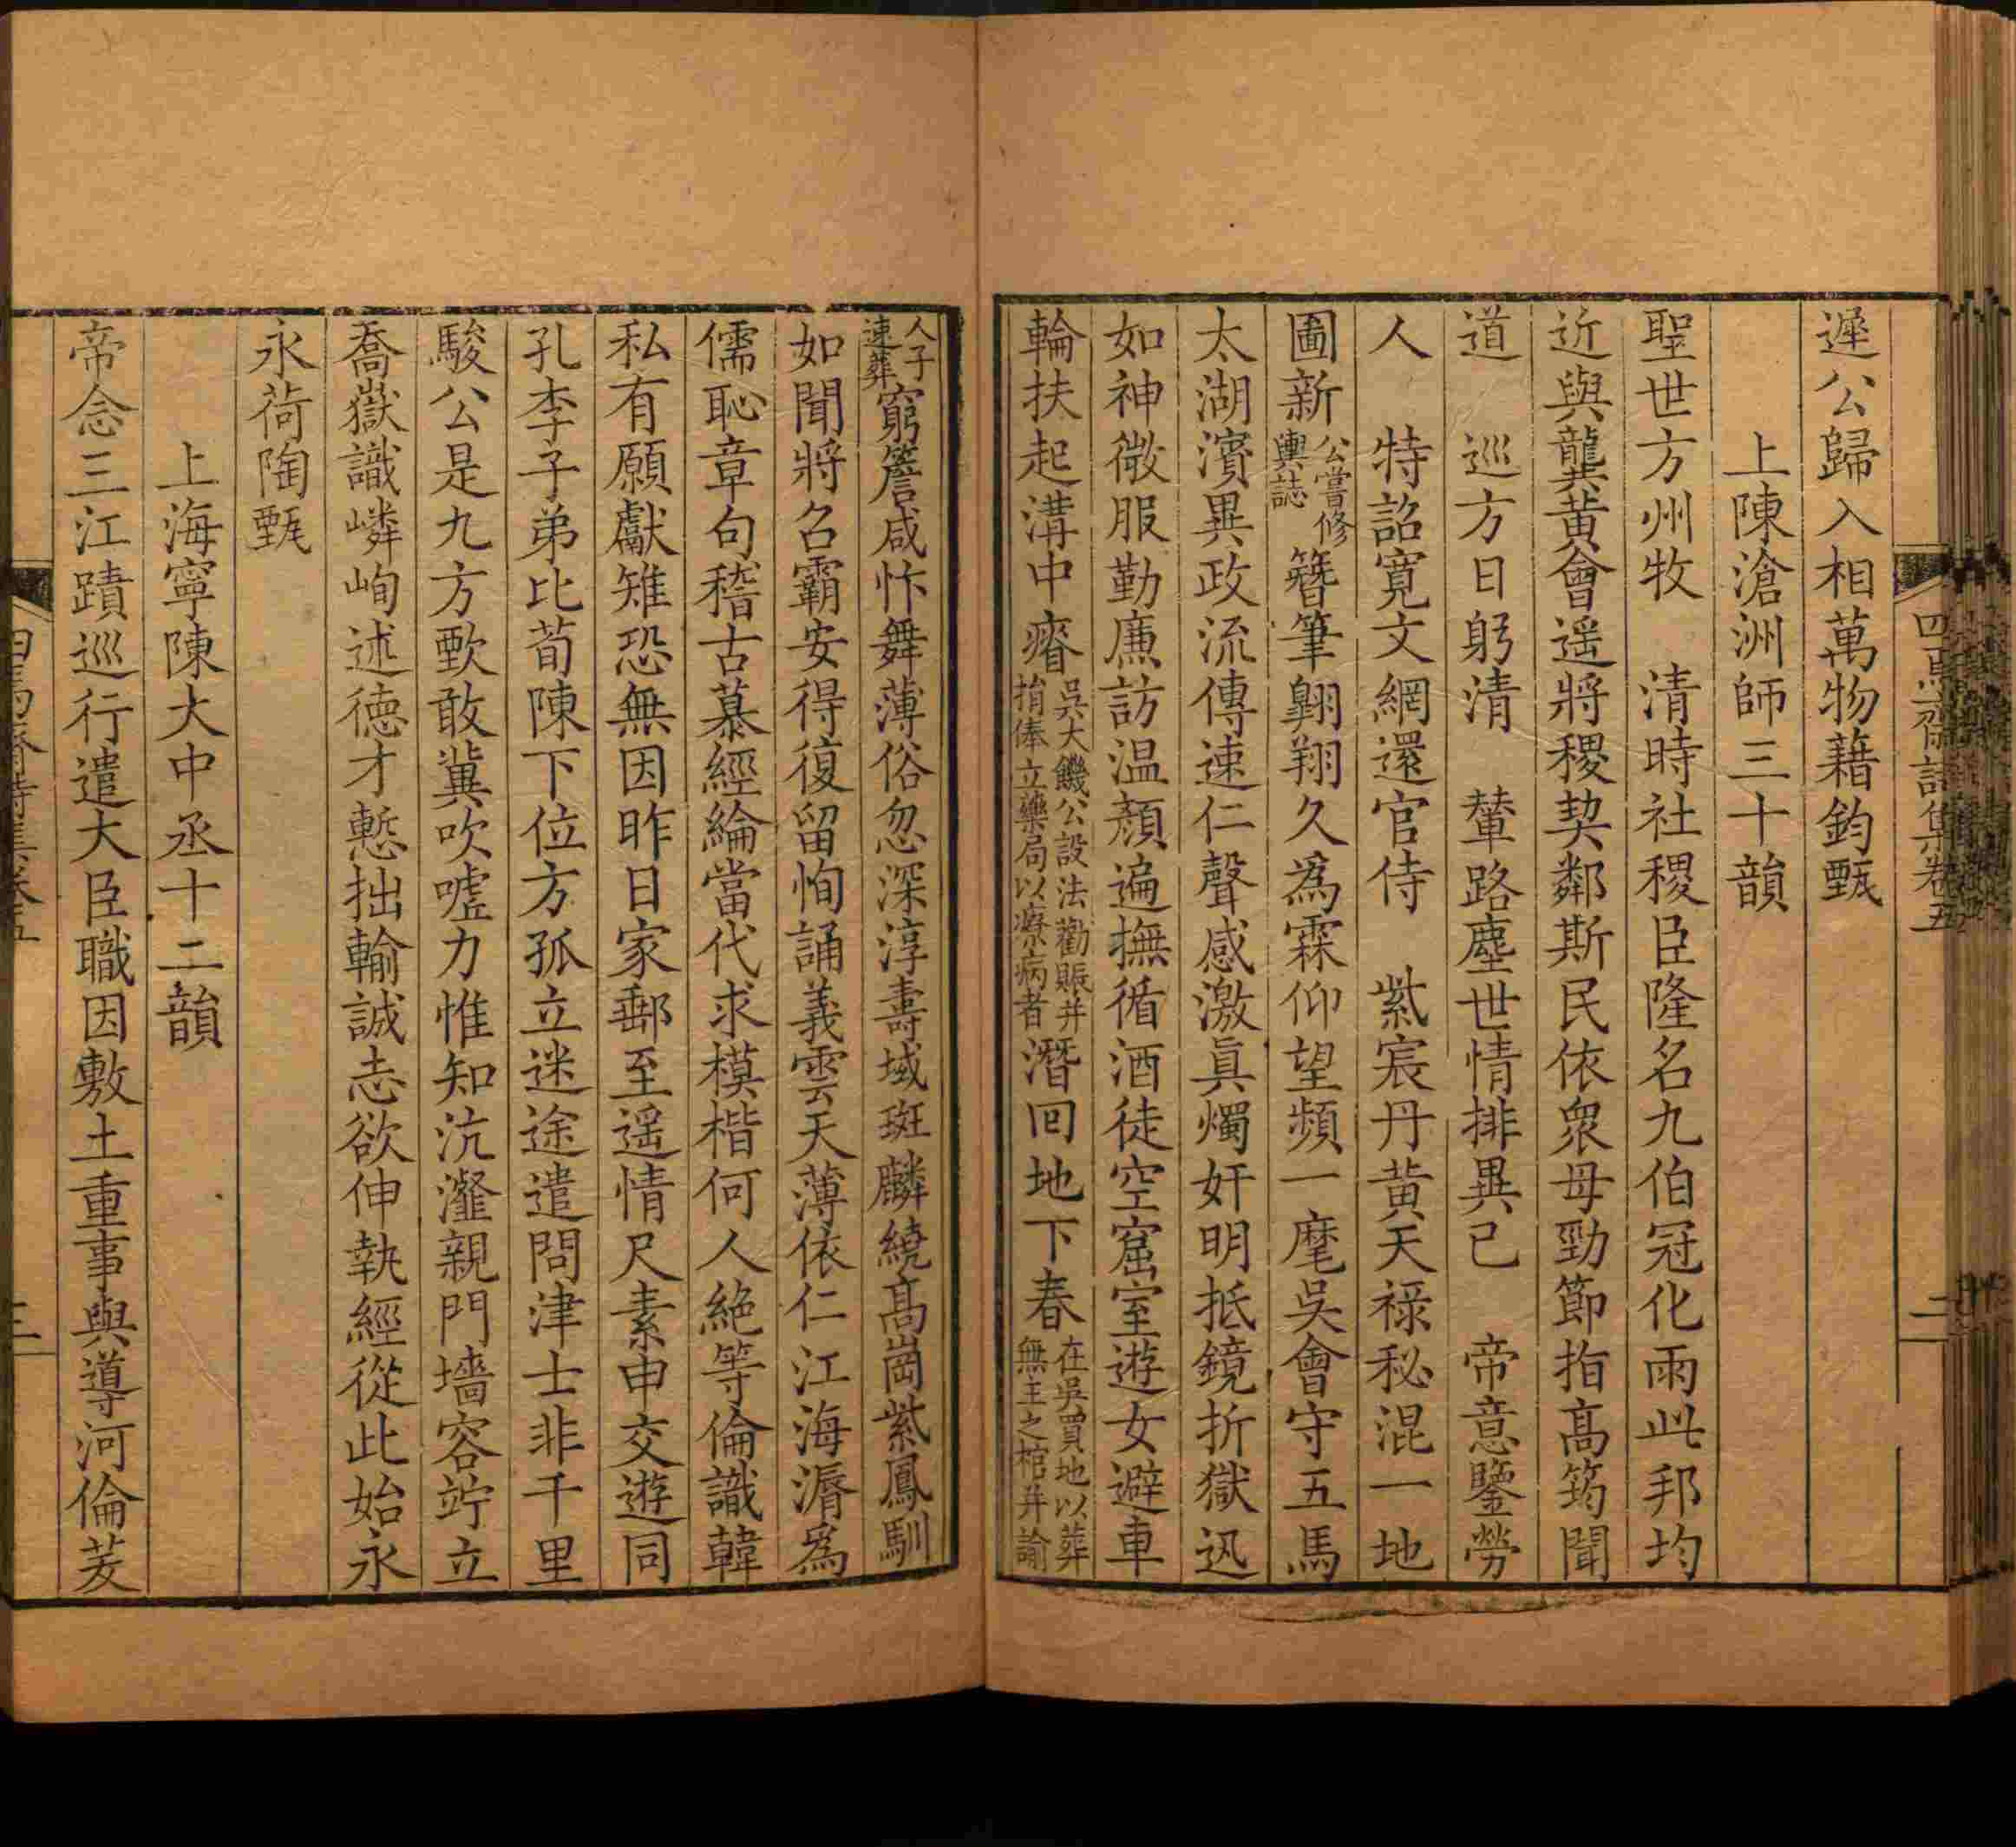 遲公歸入相萬物藉鈞甄
上陳滄洲師三十韻
聖世方州牧 清時社稷臣隆名九伯冠化雨此邦均
近與龔黃會遥將稷契鄰斯民依衆母勁節指髙筠聞
道 巡方日躬清 輦路塵世情排異己 帝意鑒勞
人 特詔寛文網還官侍 紫宸丹黄天禄秘混一地
圖新公嘗修輿誌簪筆翺翔久爲霖仰望頻一麾吳會守五馬
太湖濱異政流傳速仁聲感激眞燭奸明抵鏡折獄迅
如神微服勤廉訪温顏遍撫循酒徒空窟室遊女避車
輪扶起溝中瘠吳大饑公設法勸賑并捐俸立藥局以療病者潛回地下春在吳買地以葬無主之棺并諭
人子速葬窮簷咸忭舞薄俗忽深淳壽域斑麟繞髙崗紫鳳馴
如聞將召霸安得復留恂誦義雲天薄依仁江海漘爲
儒恥章句稽古慕經綸當代求模楷何人絶等倫識韓
私有願獻雉恐無因昨日家郵至遥情尺素申交遊同
孔李子弟比荀陳下位方孤立迷途遣問津士非千里
駿公是九方甄敢冀吹噓力惟知沆瀣親門墻容竚立
喬嶽識嶙峋述徳才慙拙輸誠志欲伸執經從此始永
永荷陶甄
上海寧陳大中丞十二韻
帝念三江蹟巡行遣大臣職因敷土重事與導河倫茇
四焉齋詩集卷五
二
三